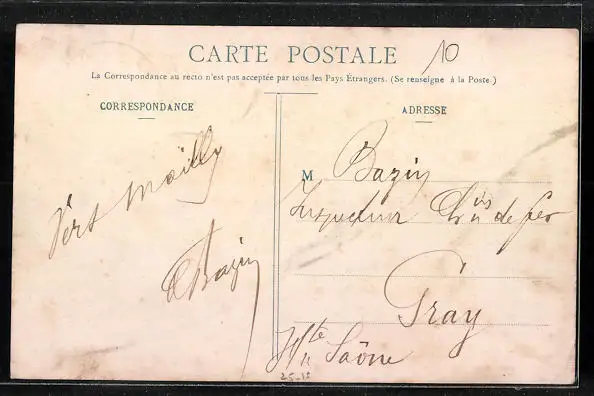 CARTE POSTALE
10
La Correspondance au recto n'est pas acceptée par tous les Pays Étrangers. (Se renseigne à la Poste.)
CORRESPONDANCE
Vers Mailly
Bazin
ADRESSE
M Bazin
Inspecteur Ch<sup>ins</sup> de fer
Gray
H<sup>te</sup> Saône